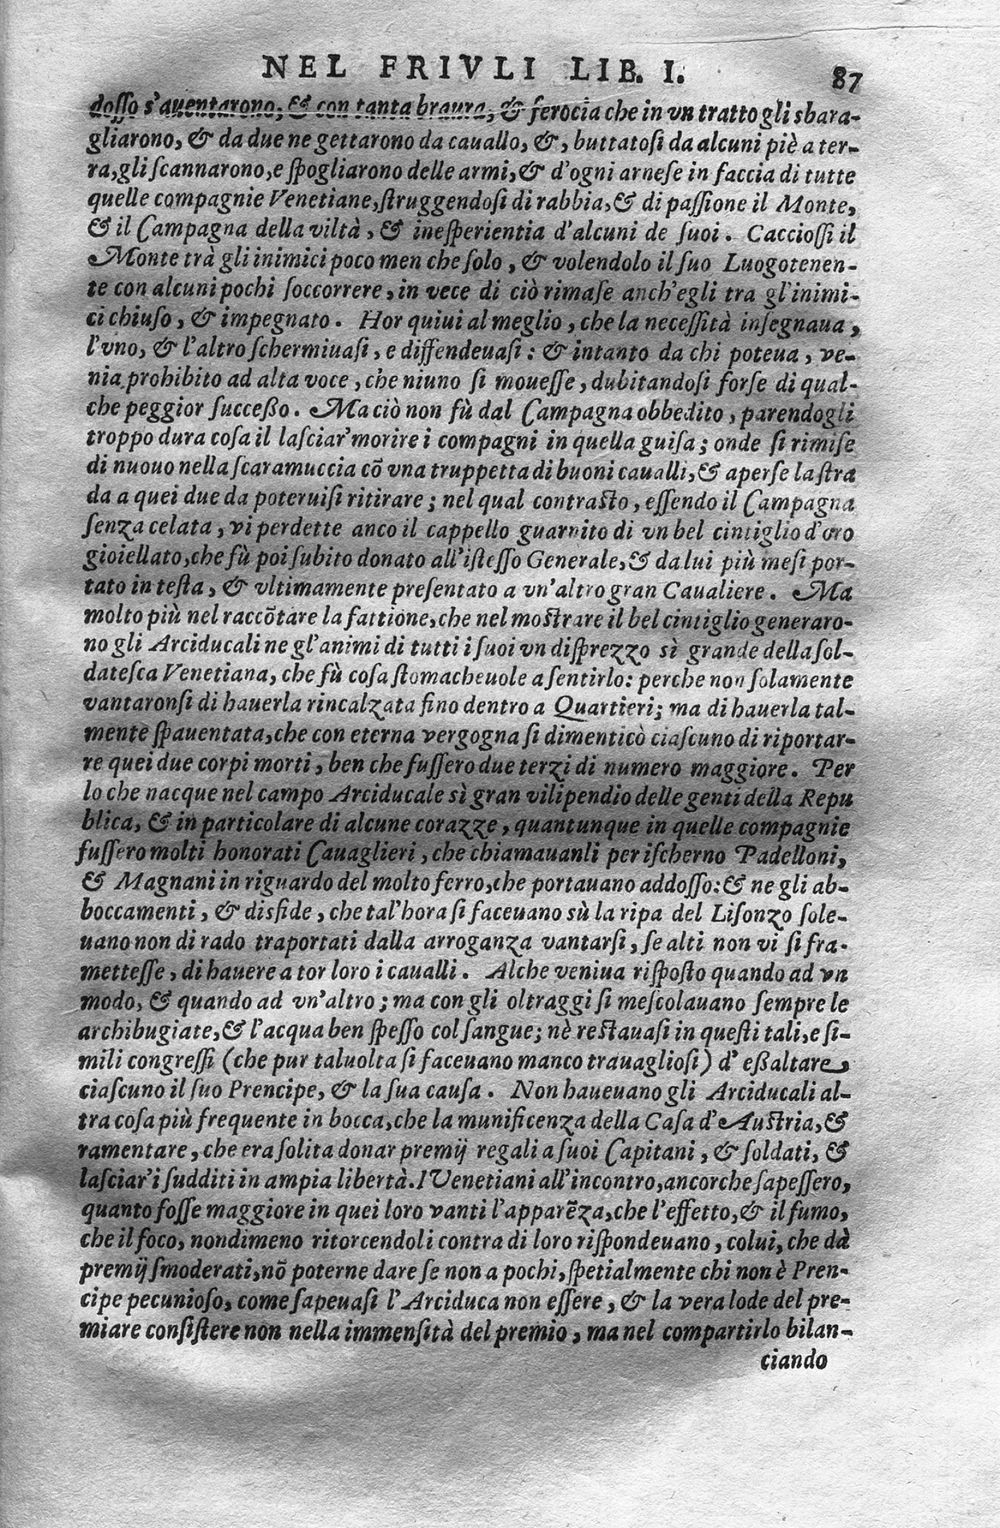 NEL FRIVLI LIB. I. 87
dosso s'auentarono, & con tanta braura, & ferocia che in vn tratto gli sbara-
gliarono, & da due ne gettarono da cauallo, &, buttatosi da alcuni piè a ter-
ra, gli scannarono, e spogliarono delle armi, & d'ogni arnese in faccia di tutte
quelle compagnie Venetiane, struggendosi di rabbia, & di passione il Monte,
& il Campagna della viltà, & inesperientia d'alcuni de suoi. Cacciossi il
Monte trà gli inimici poco men che solo, & volendolo il suo Luogotenen-
te con alcuni pochi soccorrere, in vece di ciò rimase anch'egli tra gl'inimi-
ci chiuso, & impegnato. Hor quiui al meglio, che la necessità insegnaua,
l'vno, & l'altro schermiuasi, e diffendeuasi: & intanto da chi poteua, ve-
nia prohibito ad alta voce, che niuno si mouesse, dubitandosi forse di qual-
che peggior successo. Ma ciò non fù dal Campagna obbedito, parendogli
troppo dura cosa il lasciar' morire i compagni in quella guisa; onde si rimise
di nuouo nella scaramuccia cō vna truppetta di buoni caualli, & aperse la stra
da a quei due da poteruisi ritirare; nel qual contrasto, essendo il Campagna
senza celata, vi perdette anco il cappello guarnito di vn bel cintiglio d'oro
gioiellato, che fù poi subito donato all'istesso Generale, & da lui più mesi por-
tato in testa, & vltimamente presentato a vn'altro gran Caualiere. Ma
molto più nel raccōtare la fattione, che nel mostrare il bel cintiglio generaro-
no gli Arciducali ne gl'animi di tutti i suoi vn disprezzo sì grande della sol-
datesca Venetiana, che fù cosa stomacheuole a sentirlo: perche non solamente
vantaronsi di hauerla rincalzata fino dentro a Quartieri; ma di hauerla tal-
mente spauentata, che con eterna vergogna si dimenticò ciascuno di riportar-
re quei due corpi morti, ben che fussero due terzi di numero maggiore. Per
lo che nacque nel campo Arciducale sì gran vilipendio delle genti della Repu
blica, & in particolare di alcune corazze, quantunque in quelle compagnie
fussero molti honorati Cauaglieri, che chiamauanli per ischerno Padelloni,
& Magnani in riguardo del molto ferro, che portauano addosso: & ne gli ab-
boccamenti, & disfide, che tal'hora si faceuano sù la ripa del Lisonzo sole-
uano non di rado traportati dalla arroganza vantarsi, se alti non vi si fra-
mettesse, di hauere a tor loro i caualli. Alche veniua risposto quando ad vn
modo, & quando ad vn'altro; ma con gli oltraggi si mescolauano sempre le
archibugiate, & l'acqua ben spesso col sangue; nè restauasi in questi tali, e si-
mili congressi (che pur taluolta si faceuano manco trauagliosi) d'essaltare
ciascuno il suo Prencipe, & la sua causa. Non haueuano gli Arciducali al-
tra cosa più frequente in bocca, che la munificenza della Casa d'Austria, &
ramentare, che era solita donar premij regali a suoi Capitani, & soldati, &
lasciar'i sudditi in ampia libertà. I Venetiani all'incontro, ancorche sapessero,
quanto fosse maggiore in quei loro vanti l'apparēza, che l'effetto, & il fumo,
che il foco, nondimeno ritorcendoli contra di loro rispondeuano, colui, che dà
premij smoderati, nō poterne dare se non a pochi, spetialmente chi non è Pren-
cipe pecunioso, come sapeuasi l'Arciduca non essere, & la vera lode del pre-
miare consistere non nella immensità del premio, ma nel compartirlo bilan-
ciando